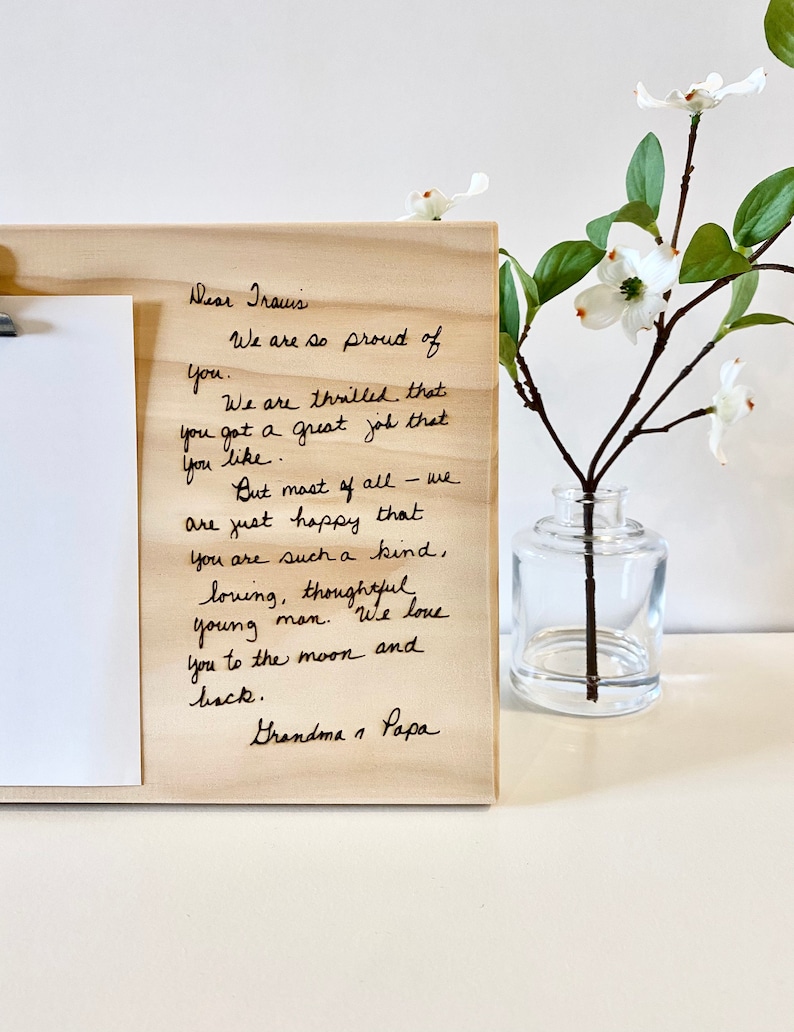 Dear Travis
We are so proud of
you.
We are thrilled that
you got a great job that
you like.
But most of all – we
are just happy that
you are such a kind,
loving, thoughtful
young man. We love
you to the moon and
back.
Grandma & Papa